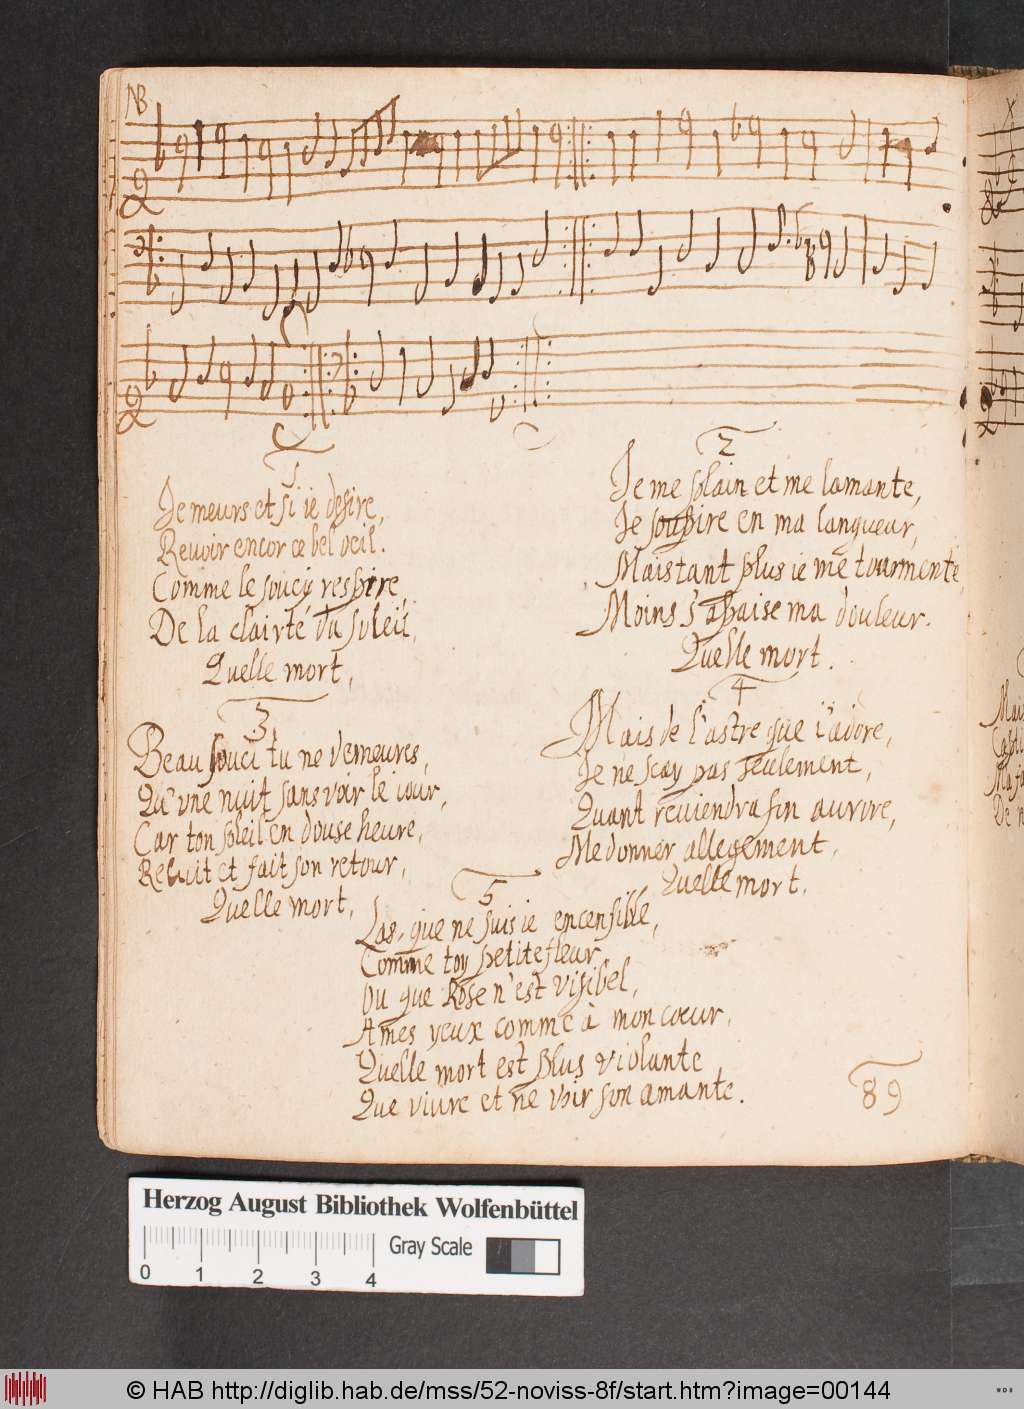 NB
1
Je meurs et si ie desire,
Revoir encor ce bel oeil.
Comme le soucy respire,
De la clairté du soleil,
Quelle mort,
2
Je me plain et me lamante,
Je souspire en ma langueur,
Mais tant plus ie me tourmente,
Moins s'apaise ma douleur.
Quelle mort.
3
Beau souci tu ne demeures,
Qu'vne nuit sans voir le iour,
Car ton soleil en douse heure,
Reluit et fait son retour,
Quelle mort,
4
Mais de l'astre que i'adore,
Je ne scay pas seulement,
Quant reviendra sin aurore,
Me donner allegement,
Quelle mort.
5
Las, que ne suis ie encensible,
Comme toy petite fleur,
Ou que Rose n'est visibel,
A mes yeux comme à mon coeur,
Quelle mort est plus violante
Que viure et ne voir son amante.
89
Herzog August Bibliothek Wolfenbüttel
0 1 2 3 4
Gray Scale
© HAB http://diglib.hab.de/mss/52-noviss-8f/start.htm?image=00144